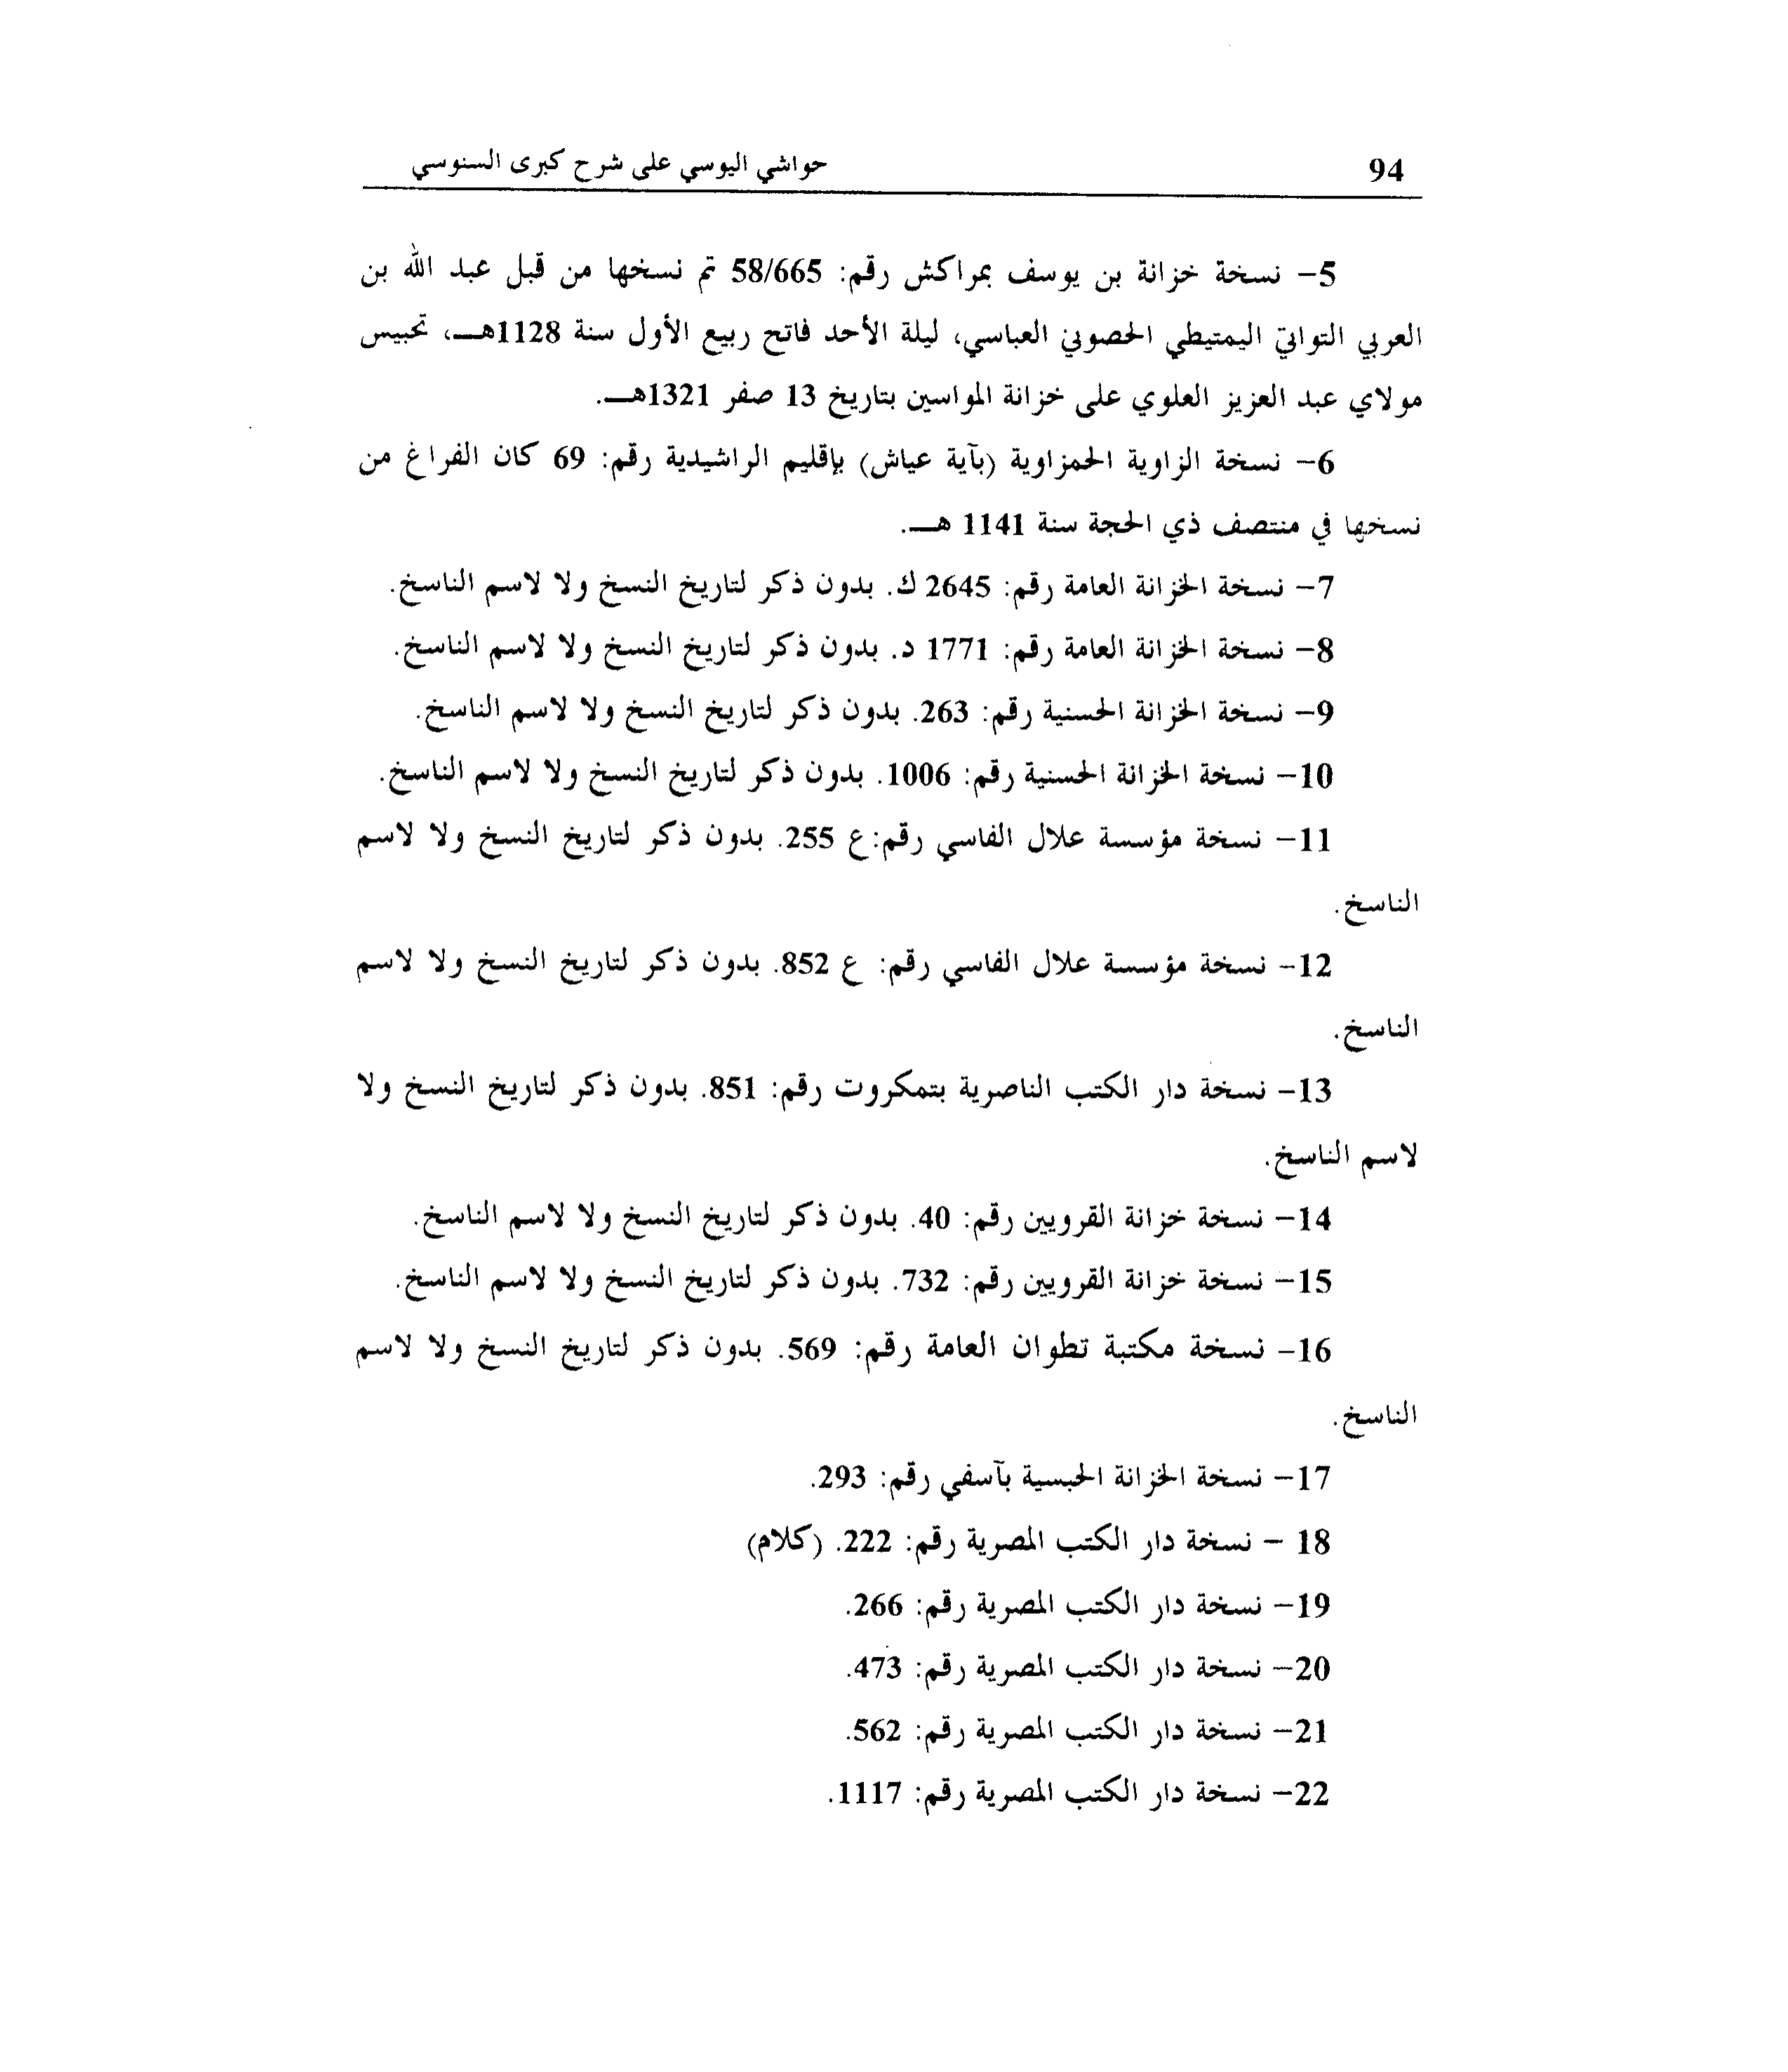 94
حواشي اليوسي على شرح كبرى السنوسي
5– نسخة خزانة بن يوسف بمراكش رقم: 58/665 تم نسخها من قبل عبد الله بن
العربي التواتي اليمتيطي الحصوني العباسي، ليلة الأحد فاتح ربيع الأول سنة 1128هـ، تحبيس
مولاي عبد العزيز العلوي على خزانة المواسين بتاريخ 13 صفر 1321هـ.
6– نسخة الزاوية الحمزاوية (بآية عياش) بإقليم الراشيدية رقم: 69 كان الفراغ من
نسخها في منتصف ذي الحجة سنة 1141 هـ.
7– نسخة الخزانة العامة رقم: 2645 ك. بدون ذكر لتاريخ النسخ ولا لاسم الناسخ.
8– نسخة الخزانة العامة رقم: 1771 د. بدون ذكر لتاريخ النسخ ولا لاسم الناسخ.
9– نسخة الخزانة الحسنية رقم: 263. بدون ذكر لتاريخ النسخ ولا لاسم الناسخ.
10– نسخة الخزانة الحسنية رقم: 1006. بدون ذكر لتاريخ النسخ ولا لاسم الناسخ.
11– نسخة مؤسسة علال الفاسي رقم:ع 255. بدون ذكر لتاريخ النسخ ولا لاسم
الناسخ.
12– نسخة مؤسسة علال الفاسي رقم: ع 852. بدون ذكر لتاريخ النسخ ولا لاسم
الناسخ.
13– نسخة دار الكتب الناصرية بتمكروت رقم: 851. بدون ذكر لتاريخ النسخ ولا
لاسم الناسخ.
14– نسخة خزانة القرويين رقم: 40. بدون ذكر لتاريخ النسخ ولا لاسم الناسخ.
15– نسخة خزانة القرويين رقم: 732. بدون ذكر لتاريخ النسخ ولا لاسم الناسخ.
16– نسخة مكتبة تطوان العامة رقم: 569. بدون ذكر لتاريخ النسخ ولا لاسم
الناسخ.
17– نسخة الخزانة الحبسية بآسفي رقم: 293.
18 – نسخة دار الكتب المصرية رقم: 222. (كلام)
19– نسخة دار الكتب المصرية رقم: 266.
20– نسخة دار الكتب المصرية رقم: 473.
21– نسخة دار الكتب المصرية رقم: 562.
22– نسخة دار الكتب المصرية رقم: 1117.